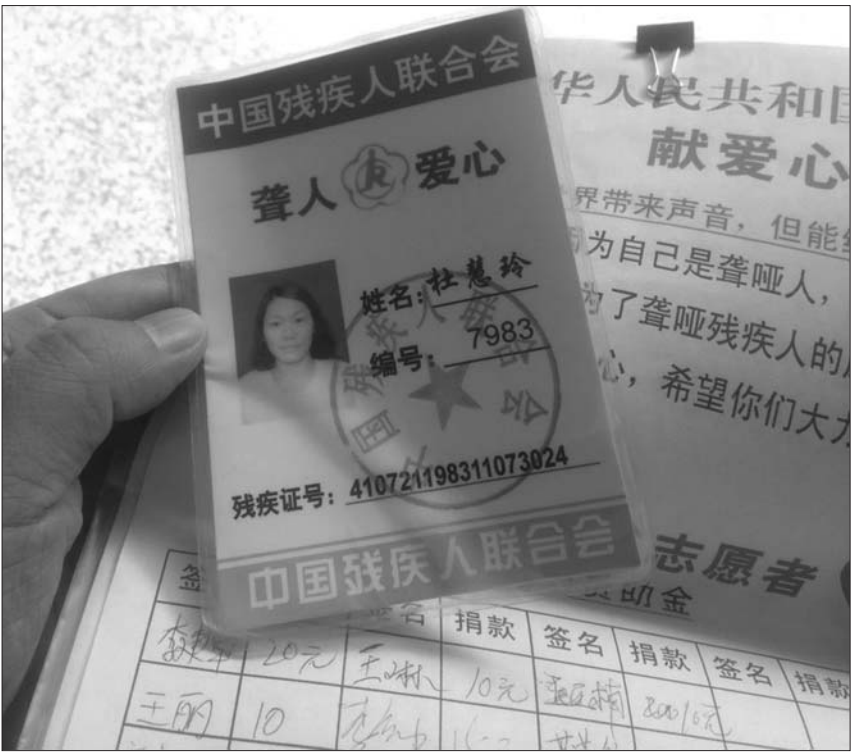 中国残疾人联合会
聋人 爱心
姓名：杜慧玲
编号：7983
残疾证号：410721198311073024
中国残疾人联合会
中国残疾人联合会
华人民共和国
献爱心
界带来声音，但能
为自己是聋哑人，
为了聋哑残疾人的
心，希望你们大力
志愿者
助金
签 签名 捐款 签名 捐款 签名 捐款
20元 王 10元
王丽 10